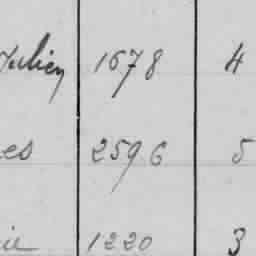 Julien 1678 4
es 2596 5
ie 1220 3